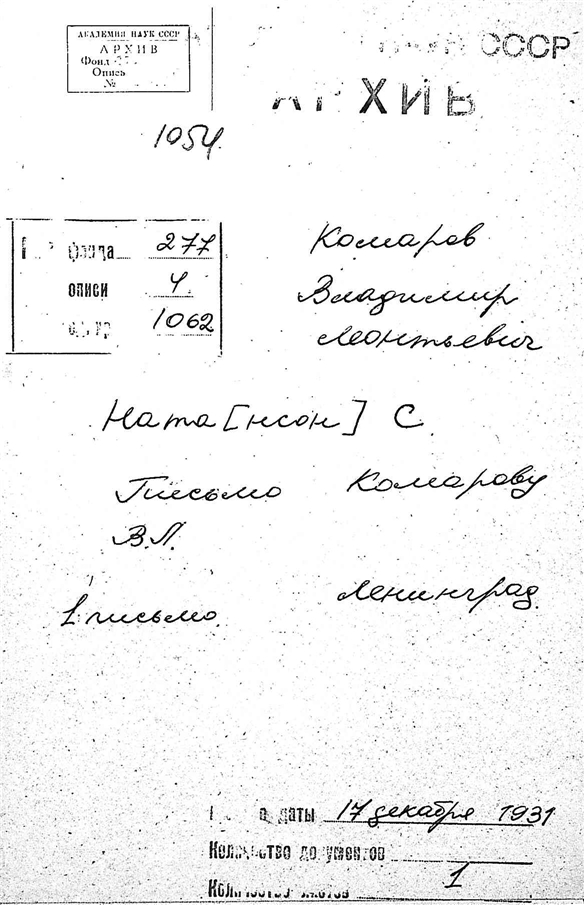 АКАДЕМИЯ НАУК СССР
АРХИВ
Фонд
Опись
№
СССР
АРХИВ
1054
фонда 277
описи 4
1062
Комаров
Владимир
Леонтьевич
Ната[нсон] С.
Письмо Комарову
В.Л.
1 письмо Ленинград.
даты 17 декабря 1931
Количество документов
Количество листов 1